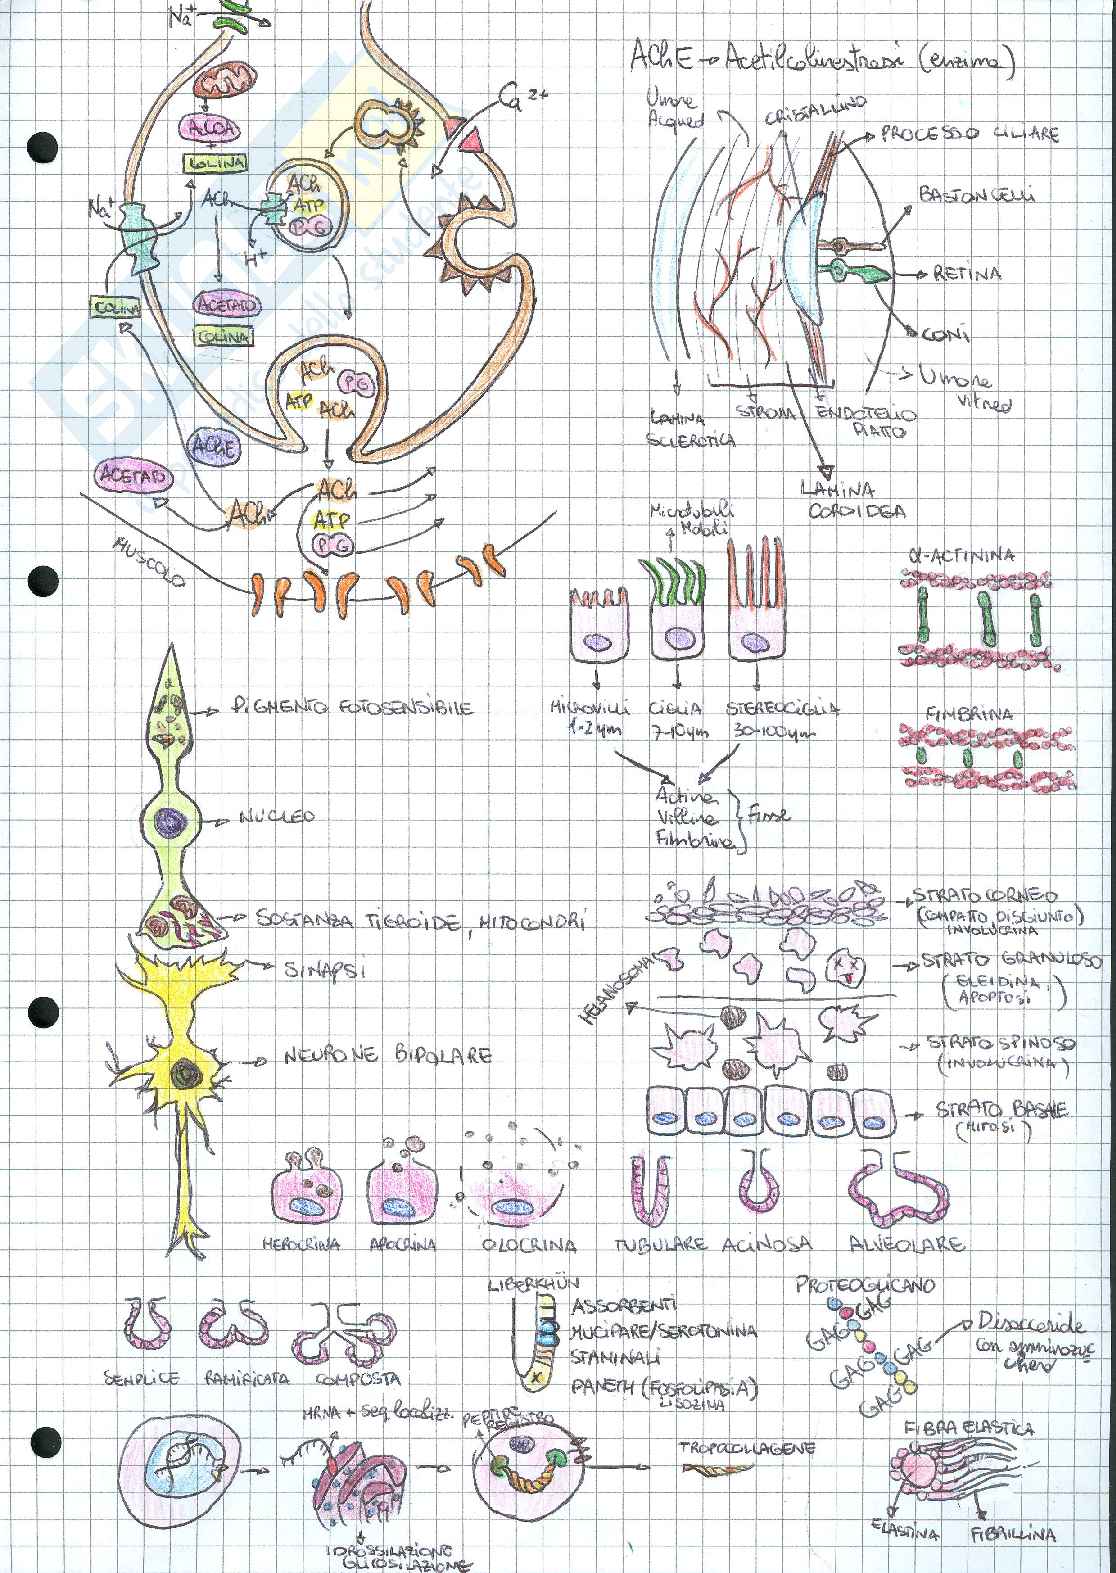 Na+
AChE → Acetilcolinestrasi (enzima)
Umore
Acqueo
CRISTALLINO
PROCESSO CILIARE
BASTONCELLI
RETINA
CONI
Umore
vitreo
LAMINA
SCLEROTICA
STROMA
ENDOTELIO
PIATTO
LAMINA
COROIDEA
Ca2+
A.COA
+
COLINA
ACh
Na+
ACh
ATP
P G
H+
COLINA
ACETATO
COLINA
ACh
P G
ATP
ACh
AChE
ACETATO
ACh
ACh
ATP
P G
MUSCOLO
Microtubuli
Mobili
MICROVILLI
1-2 μm
CIGLIA
7-10 μm
STEREOCIGLIA
30-100 μm
Actina
Villina
Fimbrina
Fisse
α-ACTININA
FIMBRINA
PIGMENTO FOTOSENSIBILE
NUCLEO
SOSTANZA TIGROIDE, MITOCONDRI
SINAPSI
NEURONE BIPOLARE
STRATO CORNEO
(COMPATTO, DISGIUNTO)
INVOLUCRINA
STRATO GRANULOSO
(ELEIDINA,
APOPTOSI)
MELANOSOMA
STRATO SPINOSO
(INVOLUCRINA)
STRATO BASALE
(MITOSI)
MEROCRINA
APOCRINA
OLOCRINA
TUBULARE
ACINOSA
ALVEOLARE
SEMPLICE
RAMIFICATA
COMPOSTA
LIBERKHÜN
ASSORBENTI
MUCIPARE/SEROTONINA
STAMINALI
PANETH (FOSFOLIPASI A)
LISOZIMA
PROTEOGLICANO
GAG
GAG
GAG
GAG
GAG
Disaccaride
con amminozuc
chero
MRNA + Seq localizz.
IDROSSILAZIONE
GLICOSILAZIONE
PEPTIDE
REGISTRO
TROPOCOLLAGENE
FIBRA ELASTICA
ELASTINA
FIBRILLINA